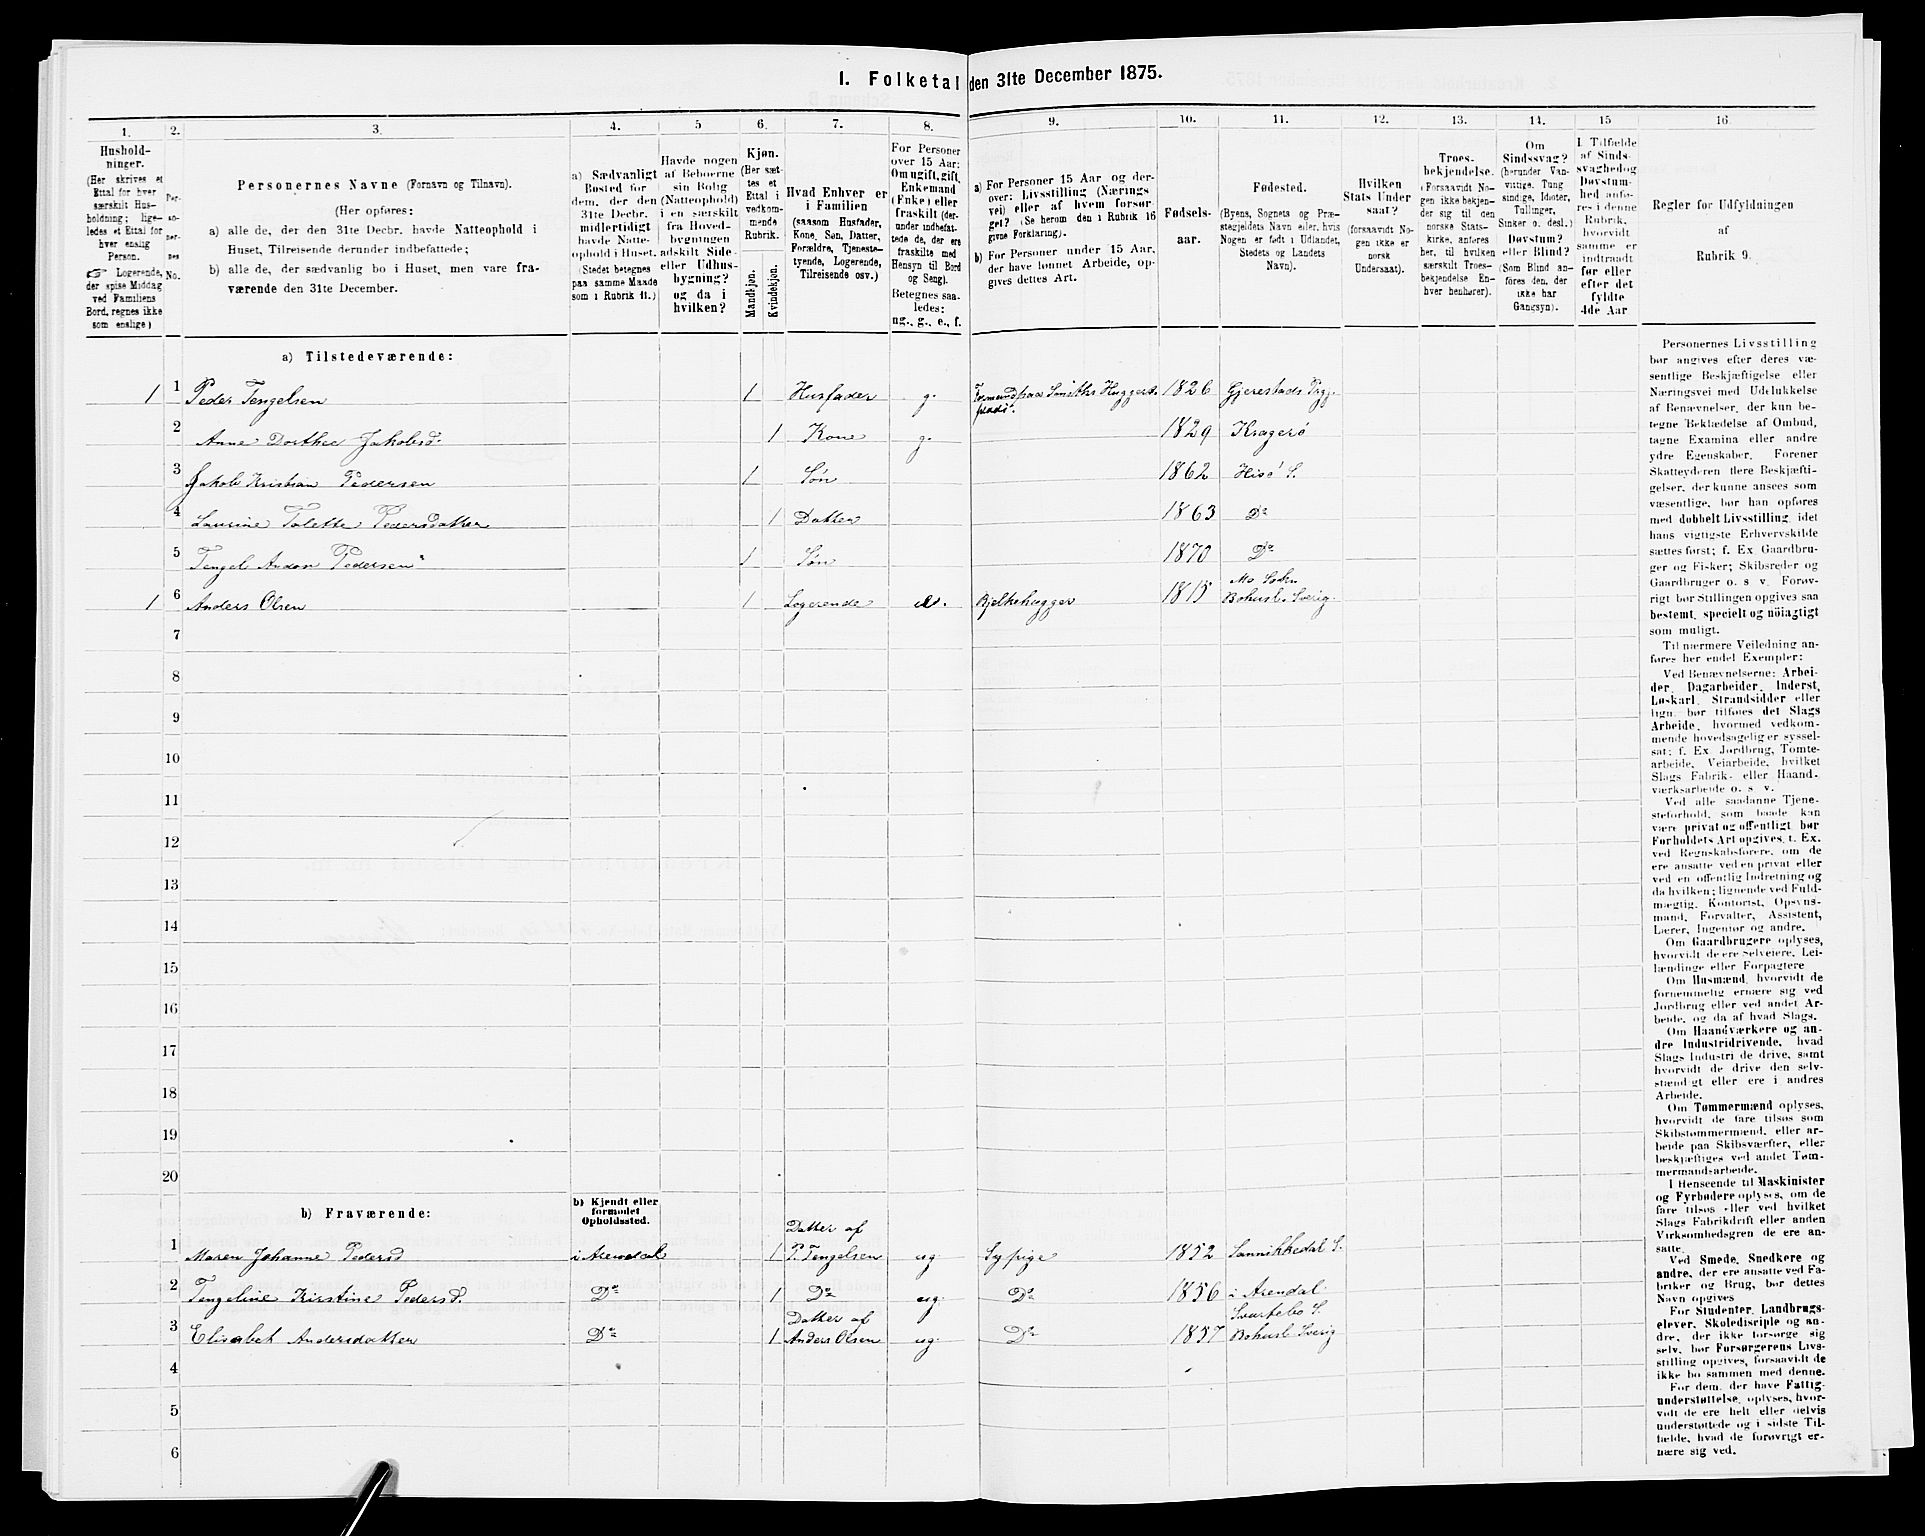 1. Folketal den 31te December 1875.
1. 2. 3. 4. 5 6. 7. 8. 9. 10. 11. 12. 13. 14. 15 16.
Hushold-
ninger.
(Her skrives et
Ettal for hver
særskilt Hus-
holdning; lige-
ledes et Ettal for
hver enslig
Person.
☞ Logerende,
der spise Middag
ved Familiens
Bord, regnes ikke
som enslige)
Per-
so-
ner-
nes
No.
Personernes Navne (Fornavn og Tilnavn).
(Her opføres:
a) alle de, der den 31te Decbr. havde Natteophold i
Huset, Tilreisende derunder indbefattede;
b) alle de, der sædvanlig bo i Huset, men vare fra-
værende den 31te December.
a) Sædvanligt
Bosted for
dem, der den
31te Decbr.
midlertidigt
havde Natte-
ophold i Huset.
(Stedet betegnes
paa samme Maade
som i Rubrik 11.)
Havde nogen
af Beboerne
sin Bolig
(Natteophold)
i en særskilt
fra Hoved-
bygningen
adskilt Side-
eller Udhus-
bygning?
og da i
hvilken?
Kjøn.
(Her sæt-
tes et
Ettal i
vedkom-
mende
Rubrik.
Mandkjøn.
Kvindekjøn.
Hvad Enhver er
i Familien
(saasom Husfader,
Kone, Søn, Datter,
Forældre, Tjeneste-
tyende, Logerende,
Tilreisende osv.)
For Personer
over 15 Aar:
Om ugift, gift,
Enkemand
(Enke) eller
fraskilt (der-
under indbefat-
tede de, der ere
fraskilte med
Hensyn til Bord
og Seng).
Betegnes saa-
ledes:
ug., g., e., f.
a) For Personer 15 Aar og der-
over: Livsstilling (Nærings
vei) eller af hvem forsør-
get? (Se herom den i Rubrik 16
givne Forklaring).
b) For Personer under 15 Aar,
der have lønnet Arbeide, op-
gives dettes Art.
Fødsels-
aar.
Fødested.
(Byens, Sognets og Præ-
stegjeldets Navn eller, hvis
Nogen er født i Udlandet,
Stedets og Landets
Navn).
Hvilken
Stats Under
saat?
(forsaavidt No-
gen ikke er
norsk
Undersaat).
Troes-
bekjendelse.
(Forsaavidt No-
gen ikke bekjen-
der sig til den
norske Stats-
kirke, anføres
her, til hvilken
særskilt Troes-
bekjendelse En-
hver henhører).
Om
Sindssvag?
(herunder Van-
vittige, Tung
sindige, Idioter,
Tullinger,
Sinker o. desl.)
Døvstum?
eller Blind?
(Som Blind an-
føres den, der
ikke har
Gangsyn).
I Tilfælde
af Sinds-
svaghed og
Døvstum-
hed anfø-
res i denne
Rubrik,
hvorvidt
samme er
indtraadt
før eller
efter det
fyldte
4de Aar
Regler for Udfyldningen
af
Rubrik 9.
a) Tilstedeværende:
1 1 Peder Tengelsen 1 Husfader g. Formand paa Smiths Huggeri-
plads. 1826 Gjerestads Prgj.
2 Anne Dorthea Jakobsd. 1 Kone g. 1829 Kragerö
3 Jakob Kristian Pedersen 1 Søn 1862 Hisö S.
4 Laurine Tolette Pedersdatter 1 Datter 1863 Do
5 Tengel Andon Pedersen 1 Søn 1870 Do
1 6 Anders Olsen 1 Logerende e. Bjelkehugger 1815 Mo Sokn
Bohusl. Sverig.
7
8
9
10
11
12
13
14
15
16
17
18
19
20
b) Fraværende:
b) Kjendt eller
formodet
Opholdssted.
1 Maren Johanne Pedersd i Arendal 1 Datter af
P. Tengelsen ug. Sypige 1852 Sannikedal S.
2 Tengeline Kirstine Pedersd. Do 1 Do ug. Do 1856 i Arendal
3 Elisabet Andersdatter Do 1 Datter af
Anders Olsen ug. Do 1857 Svartebo S.
Bohusl Sverig
4
5
6
Personernes Livsstilling
bør angives efter deres væ-
sentlige Beskjæftigelse eller
Næringsvei med Udelukkelse
af Benævnelser, der kun be-
tegne Beklædelse af Ombud,
tagne Examina eller andre
ydre Egenskaber. Forener
Skatteyderen flere Beskjæfti-
gelser, der kunne ansees som
væsentlige, bør han opføres
med dobbelt Livsstilling, idet
hans vigtigste Erhvervskilde
sættes først; f. Ex Gaardbru-
ger og Fisker; Skibsreder og
Gaardbruger o. s v. Forøv-
rigt bør Stillingen opgives saa
bestemt, specielt og nöiagtigt
som muligt.
Til nærmere Veiledning an-
føres her endel Exempler:
Ved Benævnelserne: Arbei-
der, Dagarbeider, Inderst,
Løskarl, Strandsidder eller
lign. bør tilføies det Slags
Arbeide, hvormed vedkom-
mende hovedsagelig er syssel-
sat; f. Ex. Jordbrug, Tomte-
arbeide, Veiarbeide, hvilket
Slags Fabrik- eller Haand-
værksarbeide o. s v.
Ved alle saadanne Tjene-
steforhold, som baade kan
være privat og offentligt bør
Forholdets Art opgives, t. Ex.
ved Regnskabsførere, om de
ere ansatte ved en privat eller
ved en offentlig Indretning og
da hvilken; lignende ved Fuld-
mægtig, Kontorist, Opsyns-
mand, Forvalter, Assistent,
Lærer, Ingeniør og andre.
Om Gaardbrugere oplyses,
hvorvidt de ere Selveiere, Lei-
lændinge eller Forpagtere
Om Husmænd, hvorvidt de
fornemmelig ernære sig ved
Jordbrug eller ved andet Ar-
beide, og da af hvad Slags.
Om Haandværkere og an-
dre Industridrivende, hvad
Slags Industri de drive, samt
hvorvidt de drive den selv-
stændigt eller ere i andres
Arbeide.
Om Tømmermænd oplyses,
hvorvidt de fare tilsøs som
Skibstømmermænd, eller ar-
beide paa Skibsværfter, eller
beskjæftiges ved andet Tøm-
mermandsarbeide.
I Henseende til Maskinister
og Fyrbødere oplyses, om de
fare tilsøs eller ved hvilket
Slags Fabrikdrift eller anden
Virksomhedsgren de ere an-
satte.
Ved Smede, Snedkere og
andre, der ere ansatte ved Fa-
briker og Brug, bør dettes
Navn opgives
For Studenter, Landbrugs-
elever, Skoledisciple og an-
dre, der ikke forsørge sig
selv, bør Forsørgerens Livs-
stilling opgives, forsaavidt de
ikke bo sammen med denne.
For dem, der have Fattig-
understøttelse, oplyses, hvor-
vidt de ere helt eller delvis
understøttede og i sidste Til-
fælde, hvad de forøvrigt er-
nære sig ved.